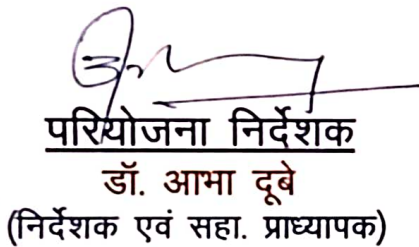 परियोजना निर्देशक
डॉ. आभा दूबे
(निर्देशक एवं सहा. प्राध्यापक)